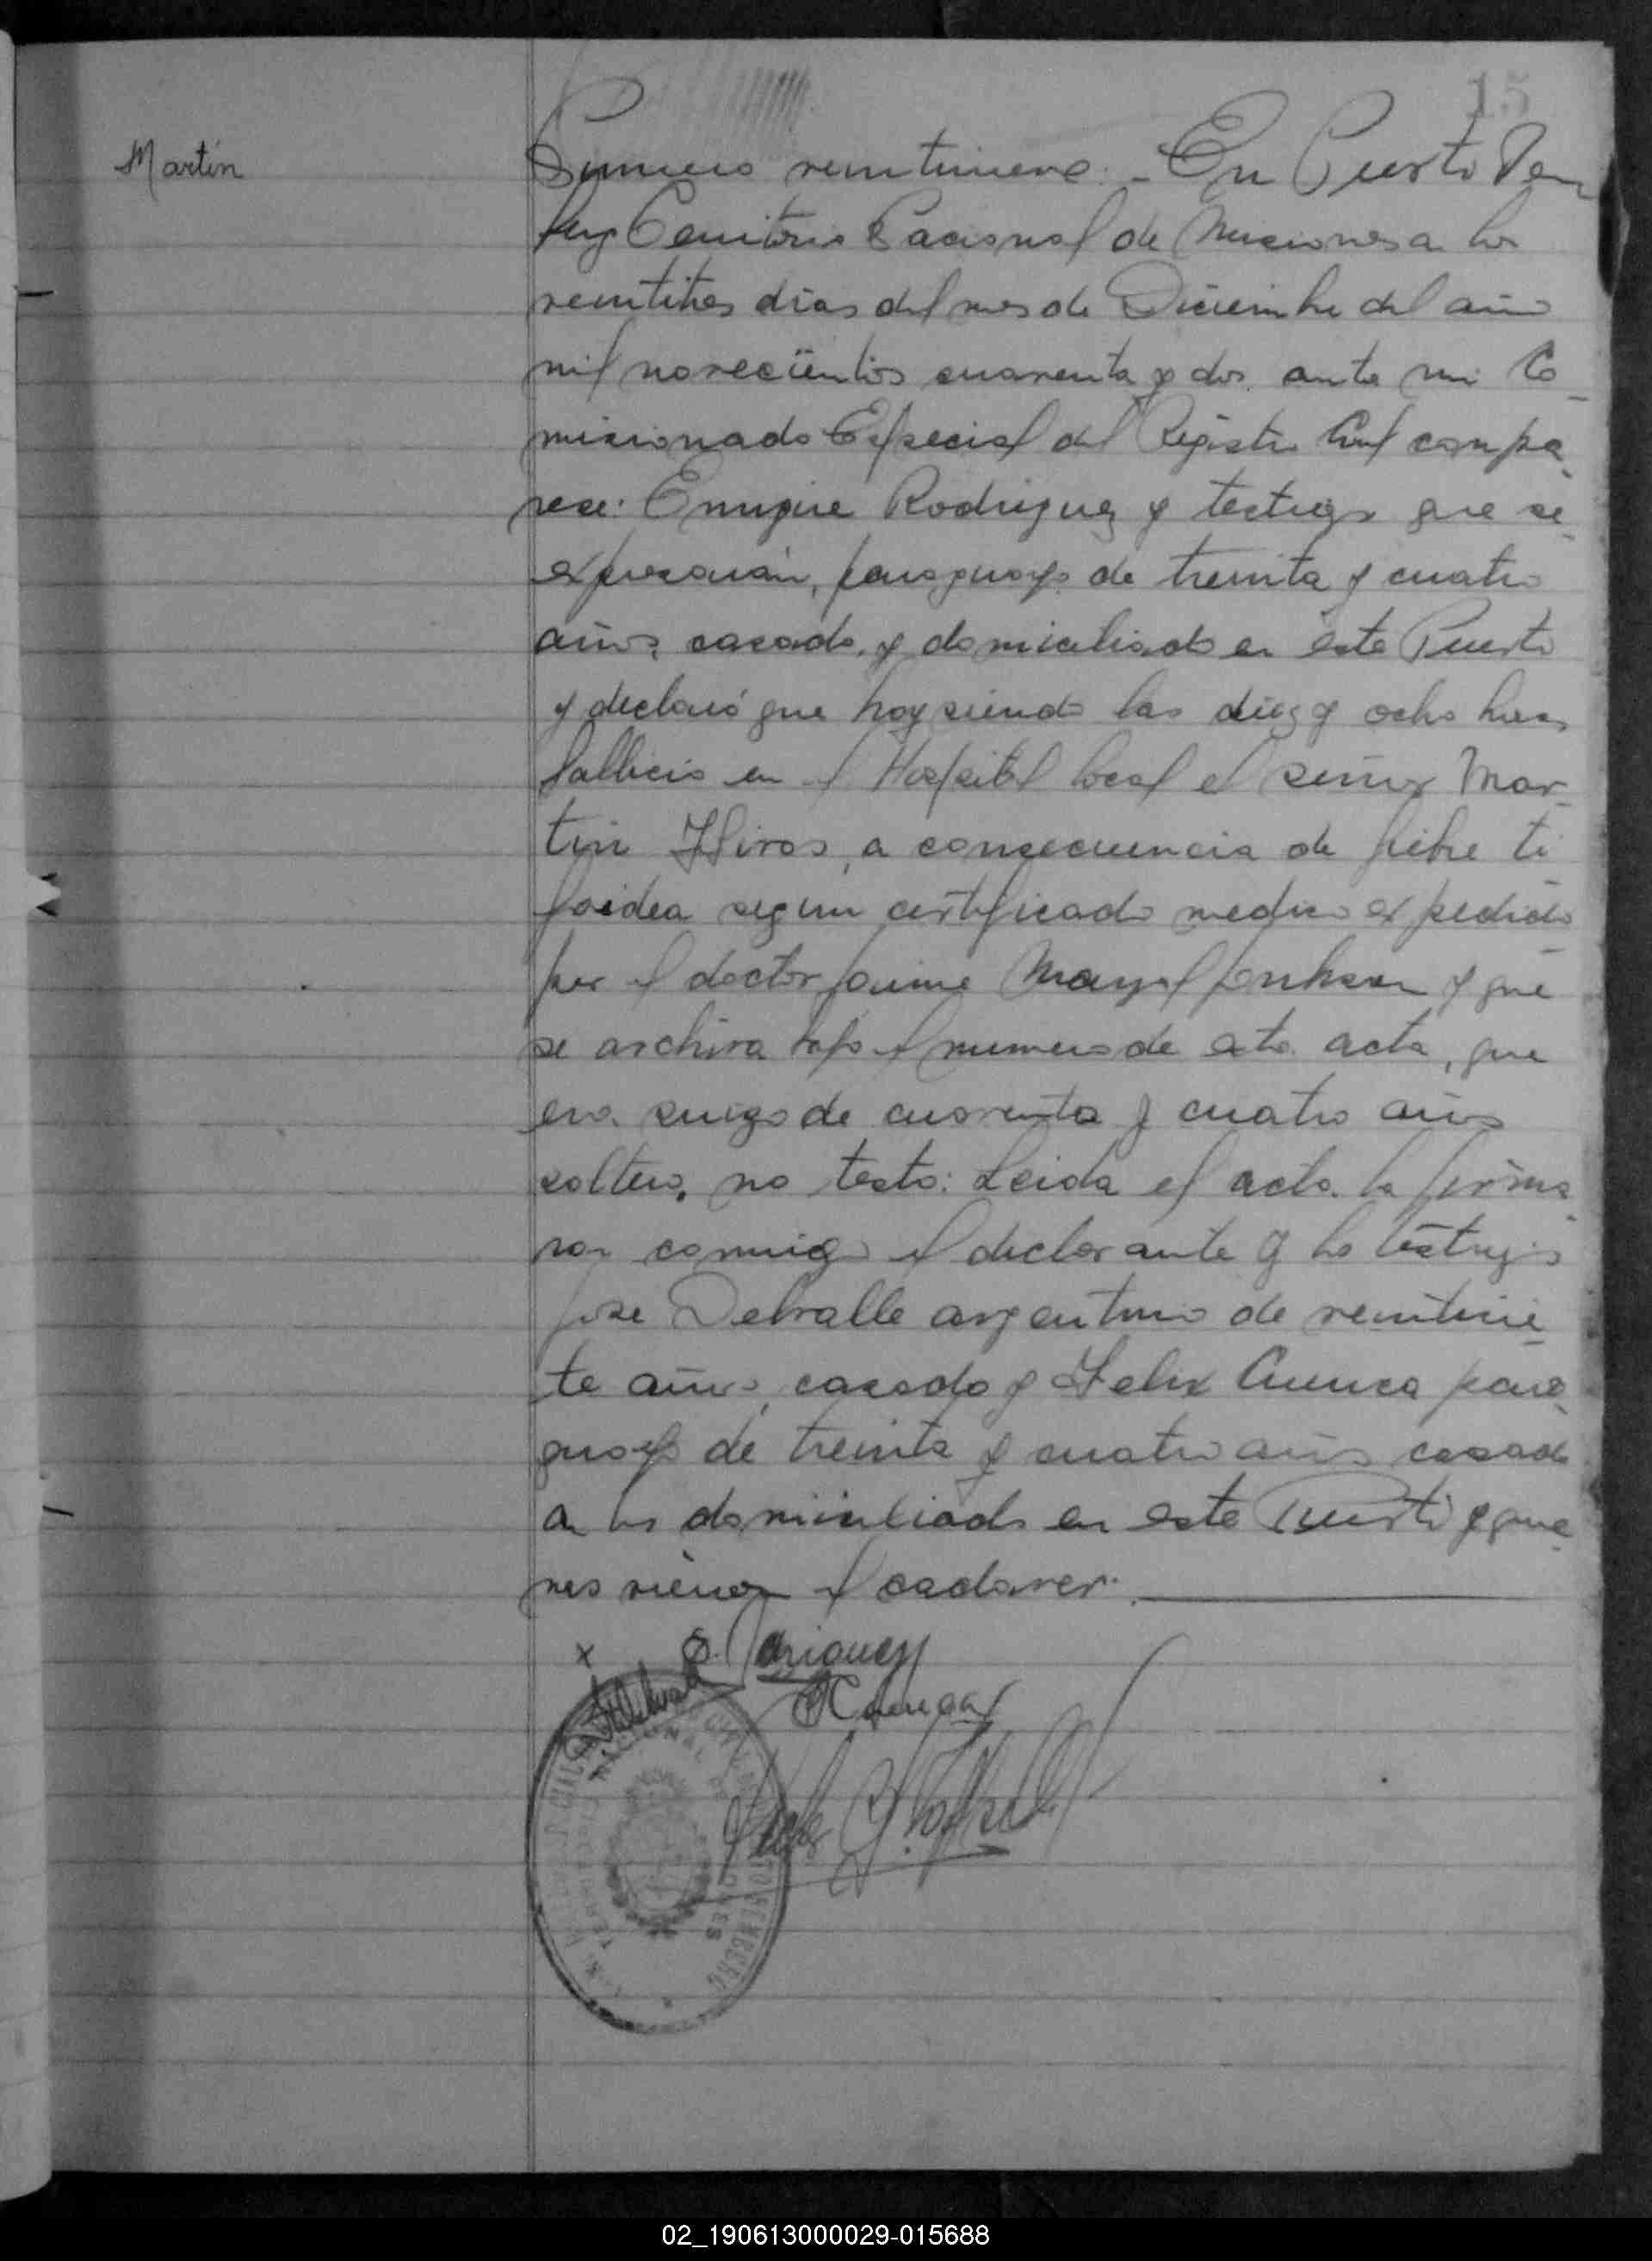 15
Martin
Numero veintinueve. - En Puerto
Territorio Nacional de Misiones a los
veintitres dias del mes de Diciembre del año
mil novecientos cuarenta y dos ante mi Co-
misionado Especial del Registro Civil compa-
rece: Enrique Rodriguez y testigos que se
expresarán, paraguayo de treinta y cuatro
años, casado, y domiciliado en este Puerto
y declaró que hoy siendo las diez y ocho horas
fallecio en el Hospital local el señor Mar-
tin a consecuencia de fiebre ti-
foidea segun certificado medico expedido
por el doctor Jaime y que
se archiva bajo el numero de esta acta, que
era suizo de cuarenta y cuatro años
soltero, no testo: Leida el acta la firma-
ron conmigo el declarante y los testigos
Jose Delvalle argentino de veintisie-
te años, casado y Felix Cuenca para-
guayo de treinta y cuatro años casado
domiciliado en este Puerto y quie-
nes vieron el cadaver.
x
TERRITORIO NACIONAL DE MISIONES
02_190613000029-015688